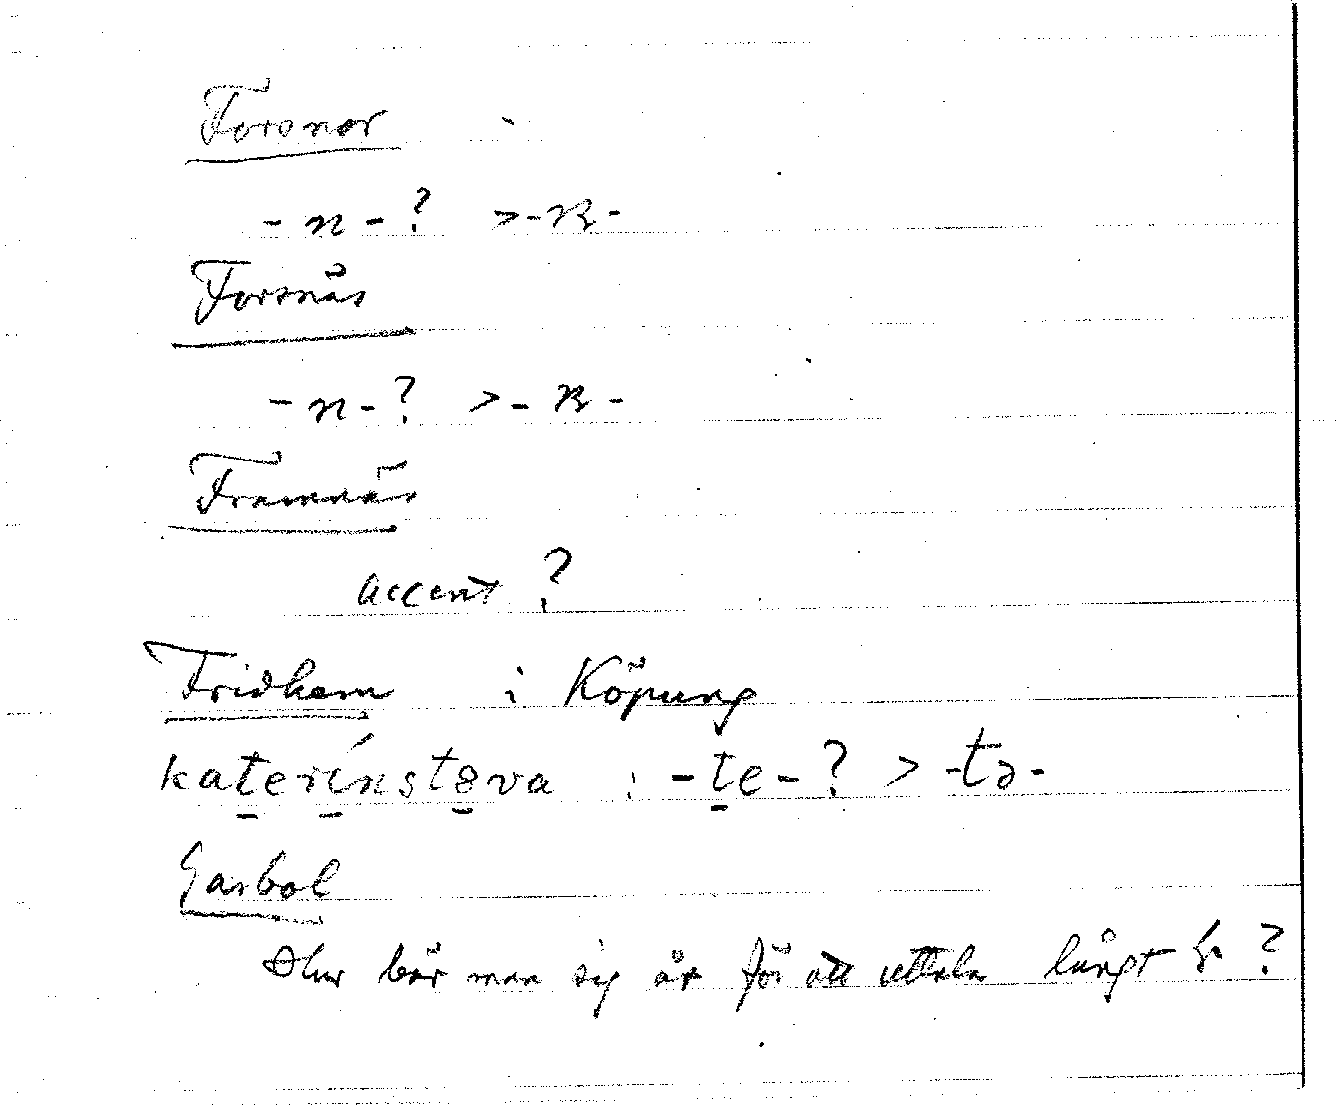 Forsnor
- n - ? > - ɳ -
Forsnäs
- n - ? > - ɳ -
Framnäs
accent ?
Fridhem i Köpung
katerínstɵva : - te - ? > -tə-
Garbol
Hur bär man sig åt för att uttala långt b ?